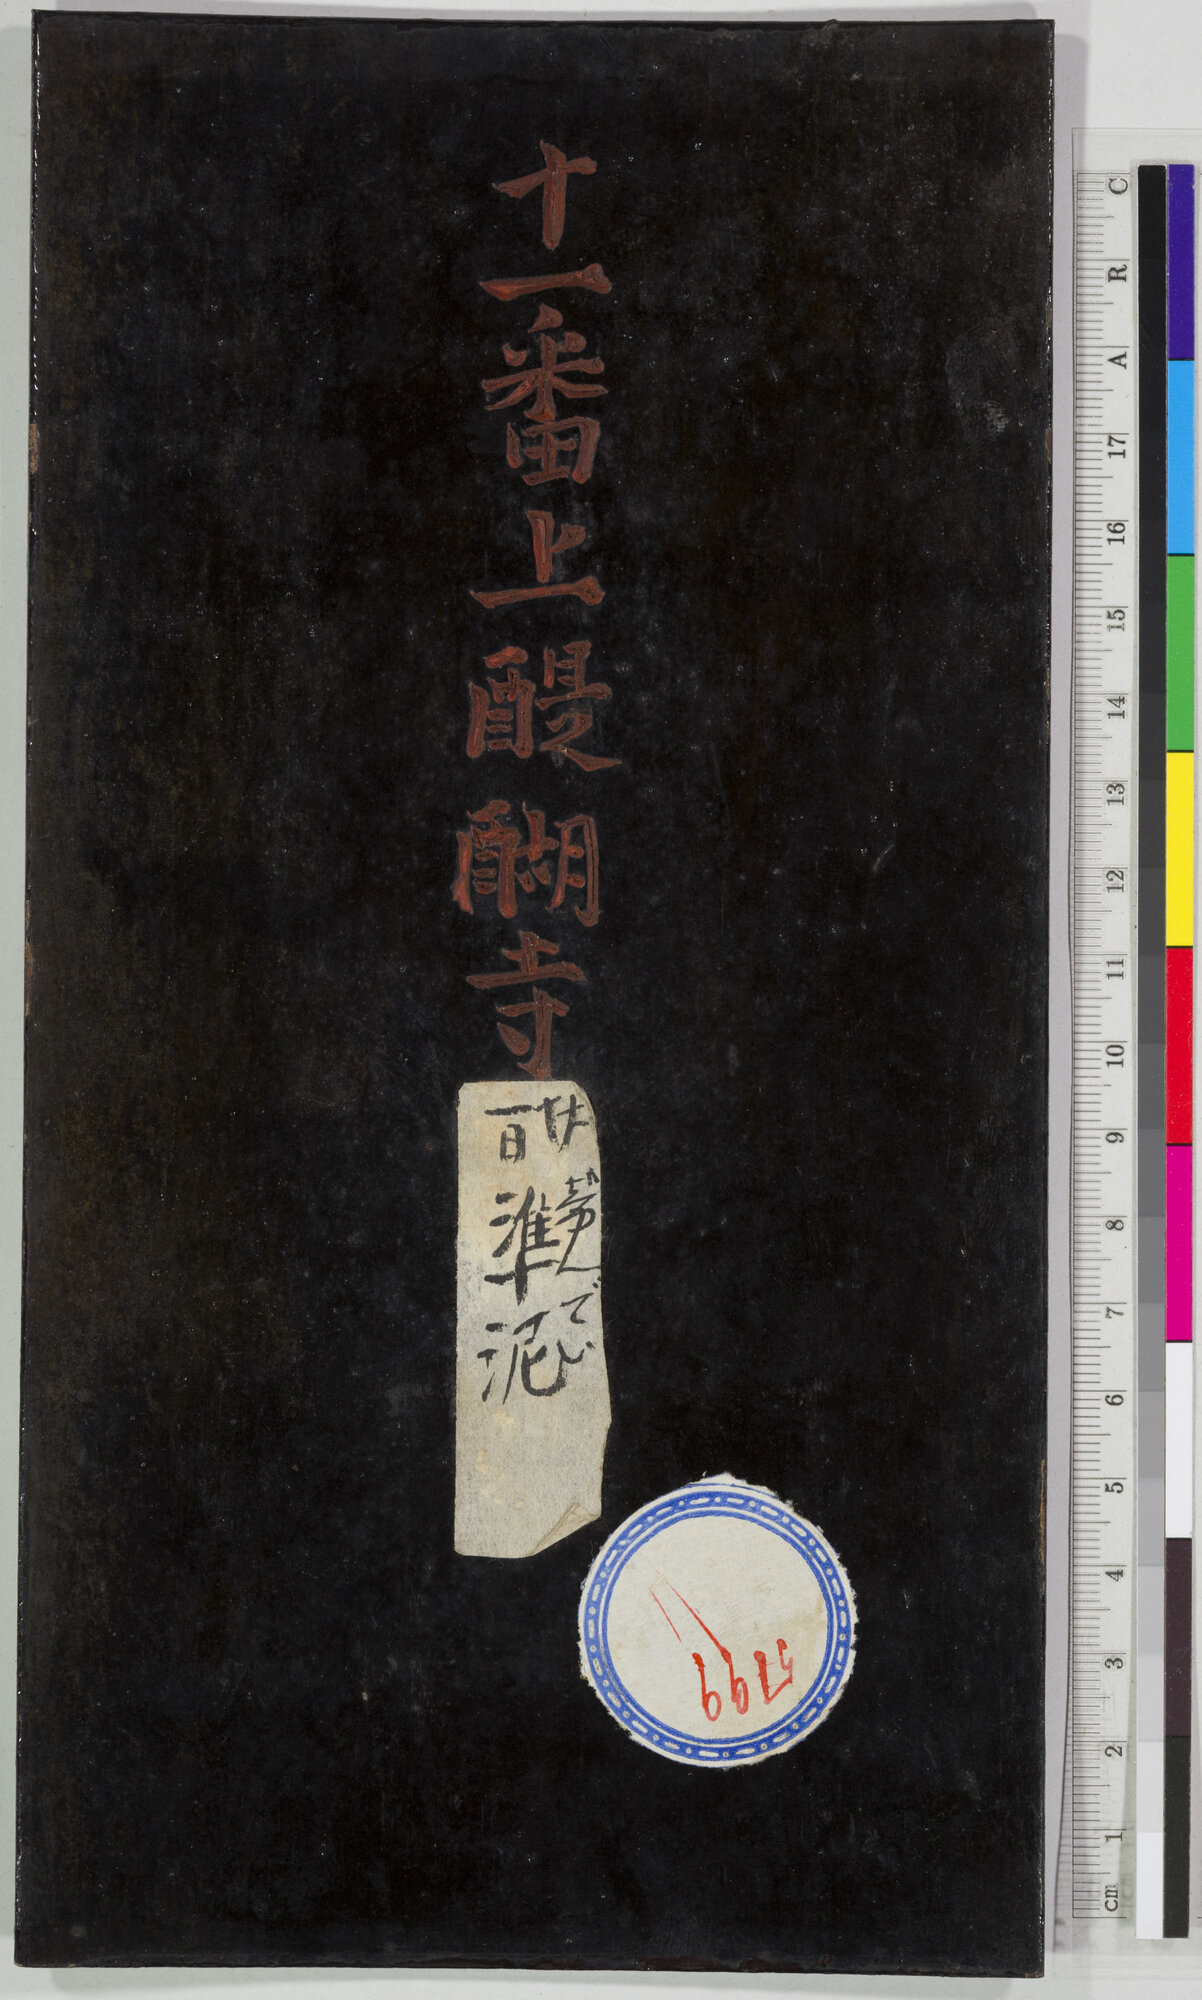 十一番上醍醐寺
じゆんでい
百準泥
C
R
A
17
16
15
14
13
12
11
10
9
8
7
6
5
4
3
2
1
cm